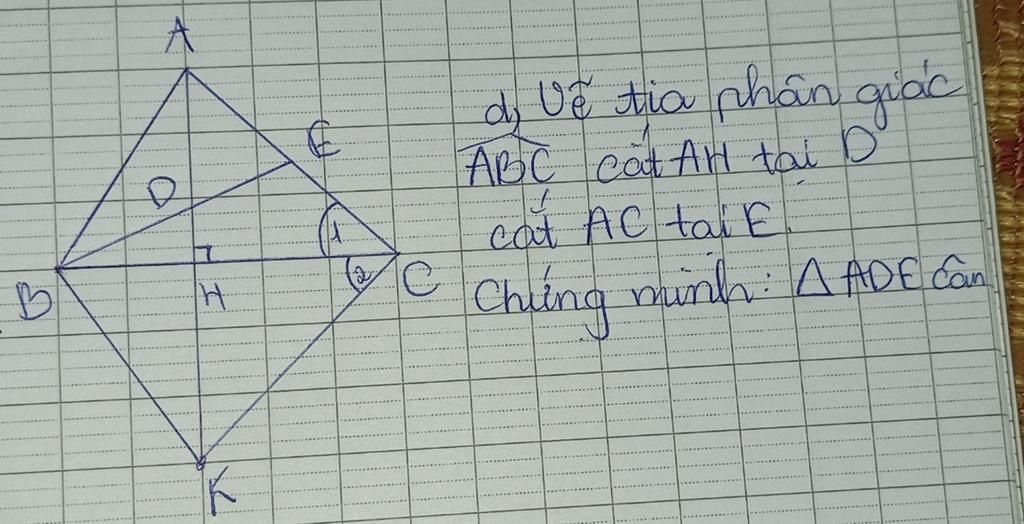 A
E
D
1
B
H
2
C
K
d) Vẽ tia phân giác
ABC cắt AH tại D
cắt AC tại E.
Chứng minh: Δ ADE cân